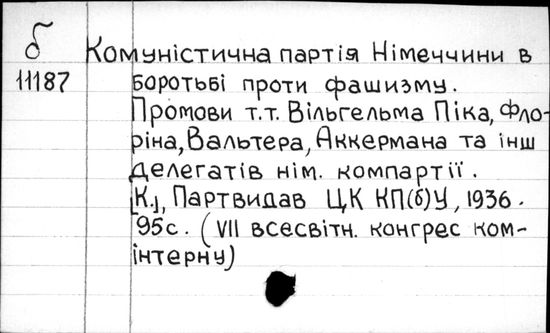 б Комуністична партія Німеччини в
11187 боротьбі проти фашизму.
Промови т.т. Вільгельма Піка, Фло-
ріна, Вальтера, Аккермана та інш
делегатів нім. компартії.
[К.], Партвидав ЦК КП(б)У, 1936.
95с. (VII всесвітн. конгрес ком-
інтерну)